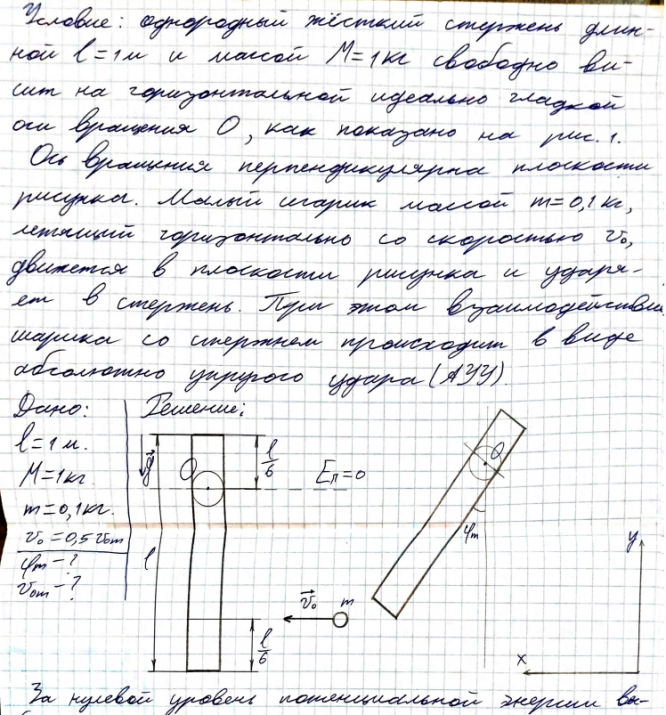 Условие: однородный жёсткий стержень длин-
ной l=1м и массой M=1кг свободно ви-
сит на горизонтальной идеально гладкой
оси вращения O, как показано на рис. 1.
Ось вращения перпендикулярна плоскости
рисунка. Малый шарик массой m=0,1кг,
летящий горизонтально со скоростью v₀,
движется в плоскости рисунка и ударя-
ет в стержень. При этом взаимодействие
шарика со стержнем происходит в виде
абсолютно упругого удара (АУУ).
Дано: Решение:
l=1м.
M=1кг.
m=0,1кг.
v₀=0,5v₀m
φm-?
v₀m-?
g
O
l/6
Eп=0
l
v₀ m
l/6
O
φm
y
x
За нулевой уровень потенциальной энергии вы-